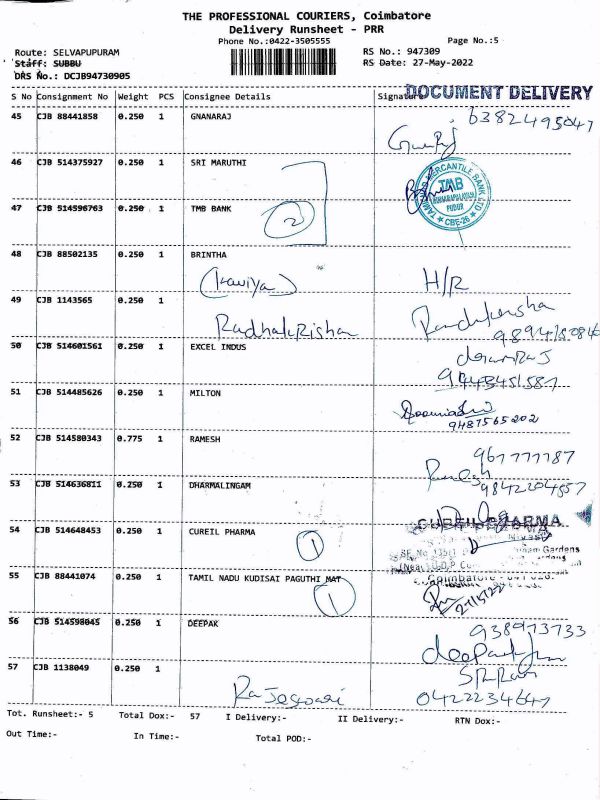 THE PROFESSIONAL COURIERS, Coimbatore
Delivery Runsheet - PRR
Phone No.:0422-3505555 Page No.:5
Route: SELVAPUPURAM RS No.: 947309
Staff: SUBBU RS Date: 27-May-2022
DRS No.: DCJB94730905
DOCUMENT DELIVERY
S No Consignment No Weight PCS Consignee Details Signature
45 CJB 88441858 0.250 1 GNANARAJ 6382495047
46 CJB 514375927 0.250 1 SRI MARUTHI
47 CJB 514596763 0.250 1 TMB BANK 2
TMB
PUDUR
CBE-26
48 CJB 88502135 0.250 1 BRINTHA
(Kaviya) H/R
49 CJB 1143565 0.250 1
Radhakrishna Radhakrisha
50 CJB 514601561 0.250 1 EXCEL INDUS
51 CJB 514485626 0.250 1 MILTON
9487565202
52 CJB 514580343 0.775 1 RAMESH
Ramesh 9842204857
53 CJB 514636811 0.250 1 DHARMALINGAM
54 CJB 514648453 0.250 1 CUREIL PHARMA 1
CUREIL PHARMA
Gardens
Coimbatore - 641 026.
55 CJB 88441074 0.250 1 TAMIL NADU KUDISAI PAGUTHI MAT 1
27/5/22
56 CJB 514598045 0.250 1 DEEPAK
deepak
57 CJB 1138049 0.250 1
Rajeswari 04222234647
Tot. Runsheet:- 5 Total Dox:- 57 I Delivery:- II Delivery:- RTN Dox:-
Out Time:- In Time:- Total POD:-